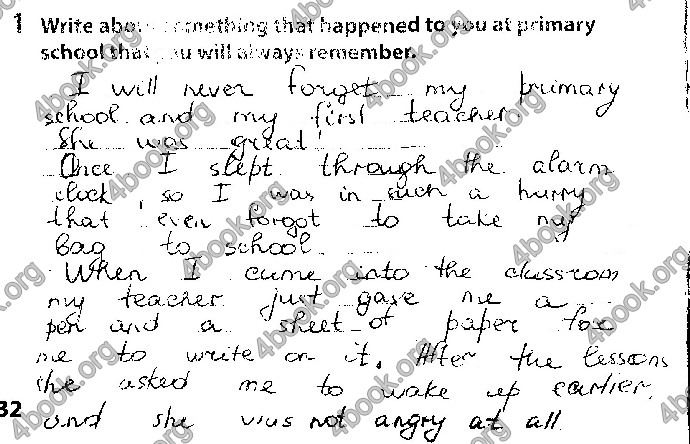 1 Write about something that happened to you at primary
school that you will always remember.
I will never forget my primary
school and my first teacher
She was great!
Once I slept through the alarm
clock, so I was in such a hurry
that even forgot to take my
bag to school
When I came into the classroom
my teacher just gave me a
pen and a sheet of paper for
me to write on it. After the lessons
she asked me to wake up earlier,
and she was not angry at all
32
4book.org